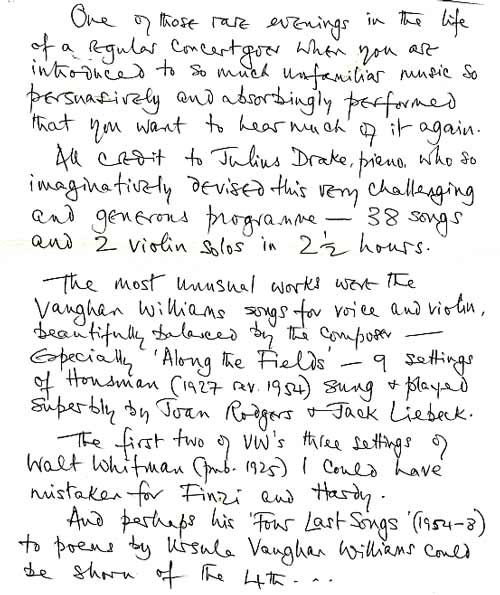 One of those rare evenings in the life
of a regular concertgoer when you are
introduced to so much unfamiliar music so
persuasively and absorbingly performed
that you want to hear much of it again.
All credit to Julius Drake, piano, who so
imaginatively devised this very challenging
and generous programme — 38 songs
and 2 violin solos in 2½ hours.
The most unusual works were the
Vaughan Williams songs for voice and violin,
beautifully balanced by the composer —
Especially 'Along the Fields' — 9 settings
of Housman (1927 rev. 1954) sung & played
superbly by Joan Rodgers & Jack Liebeck.
The first two of VW's three settings of
Walt Whitman (pub. 1925) I could have
mistaken for Finzi and Hardy.
And perhaps his 'Four Last Songs' (1954-8)
to poems by Ursula Vaughan Williams could
be shorn of the 4th...